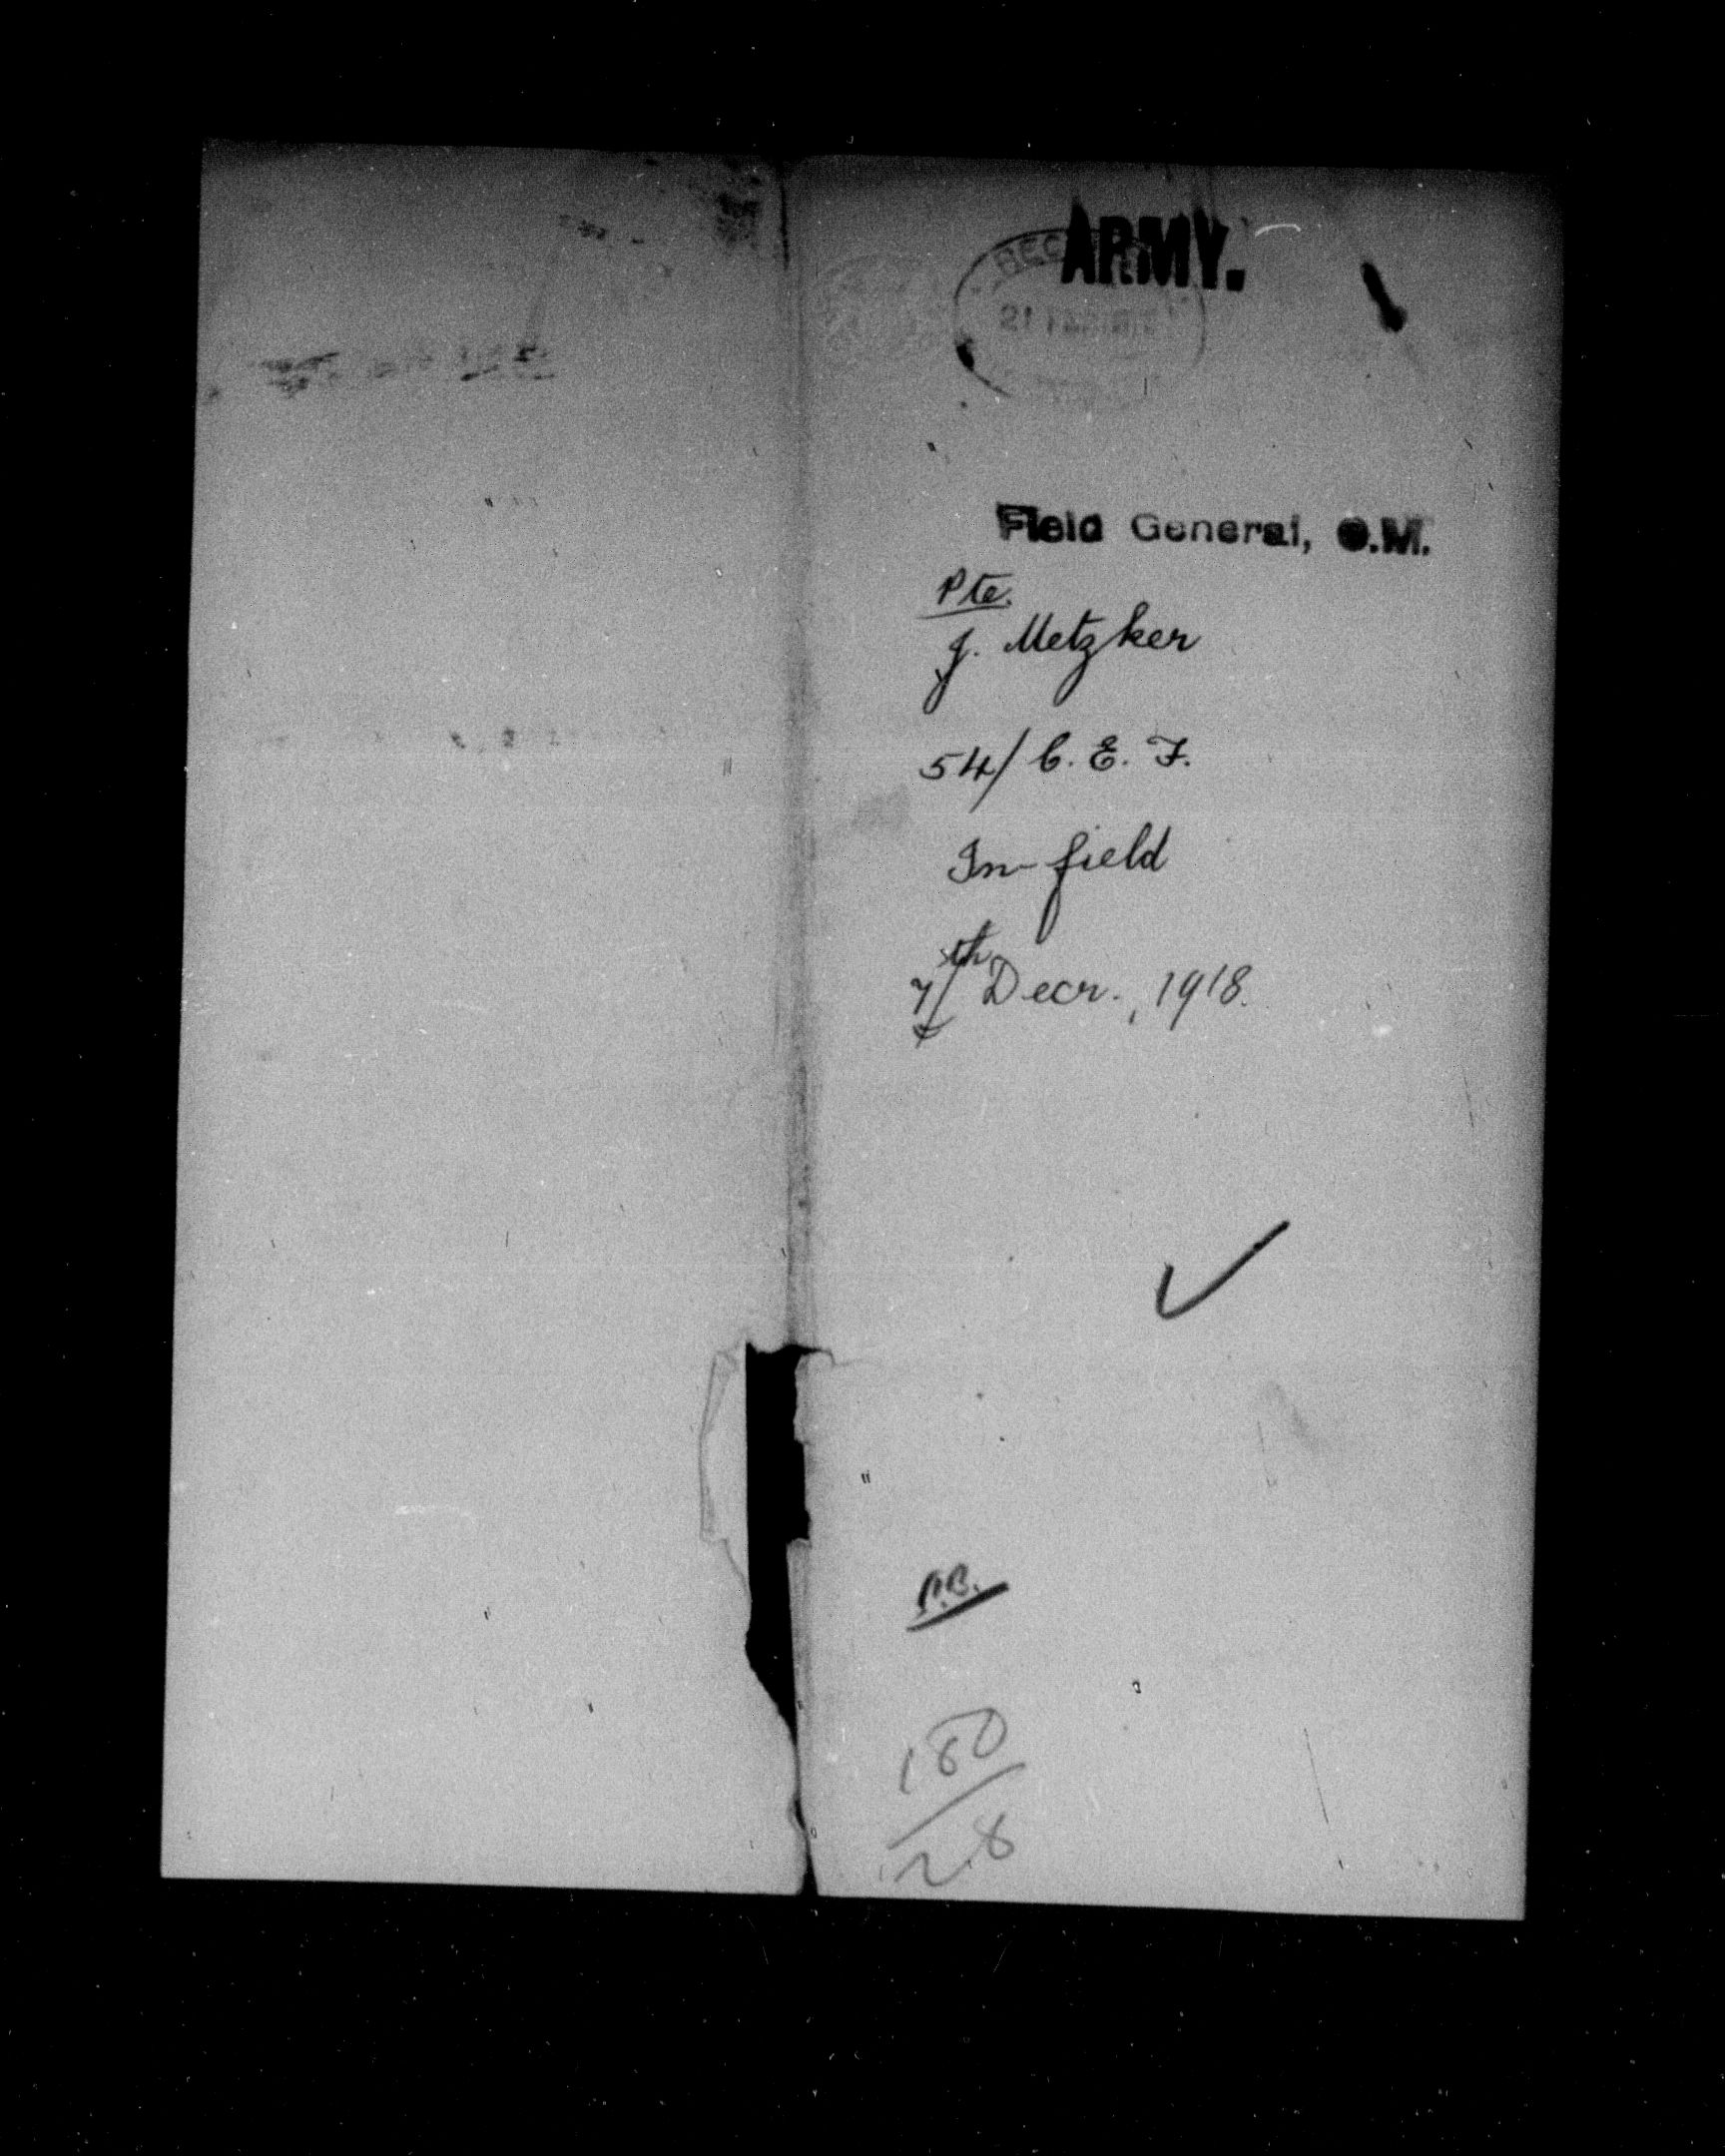 ARMY.
Field General, C.M.
Pte.
J. Metzker
54/ C. E. F.
In field
7/th Decr., 1918.
180
28